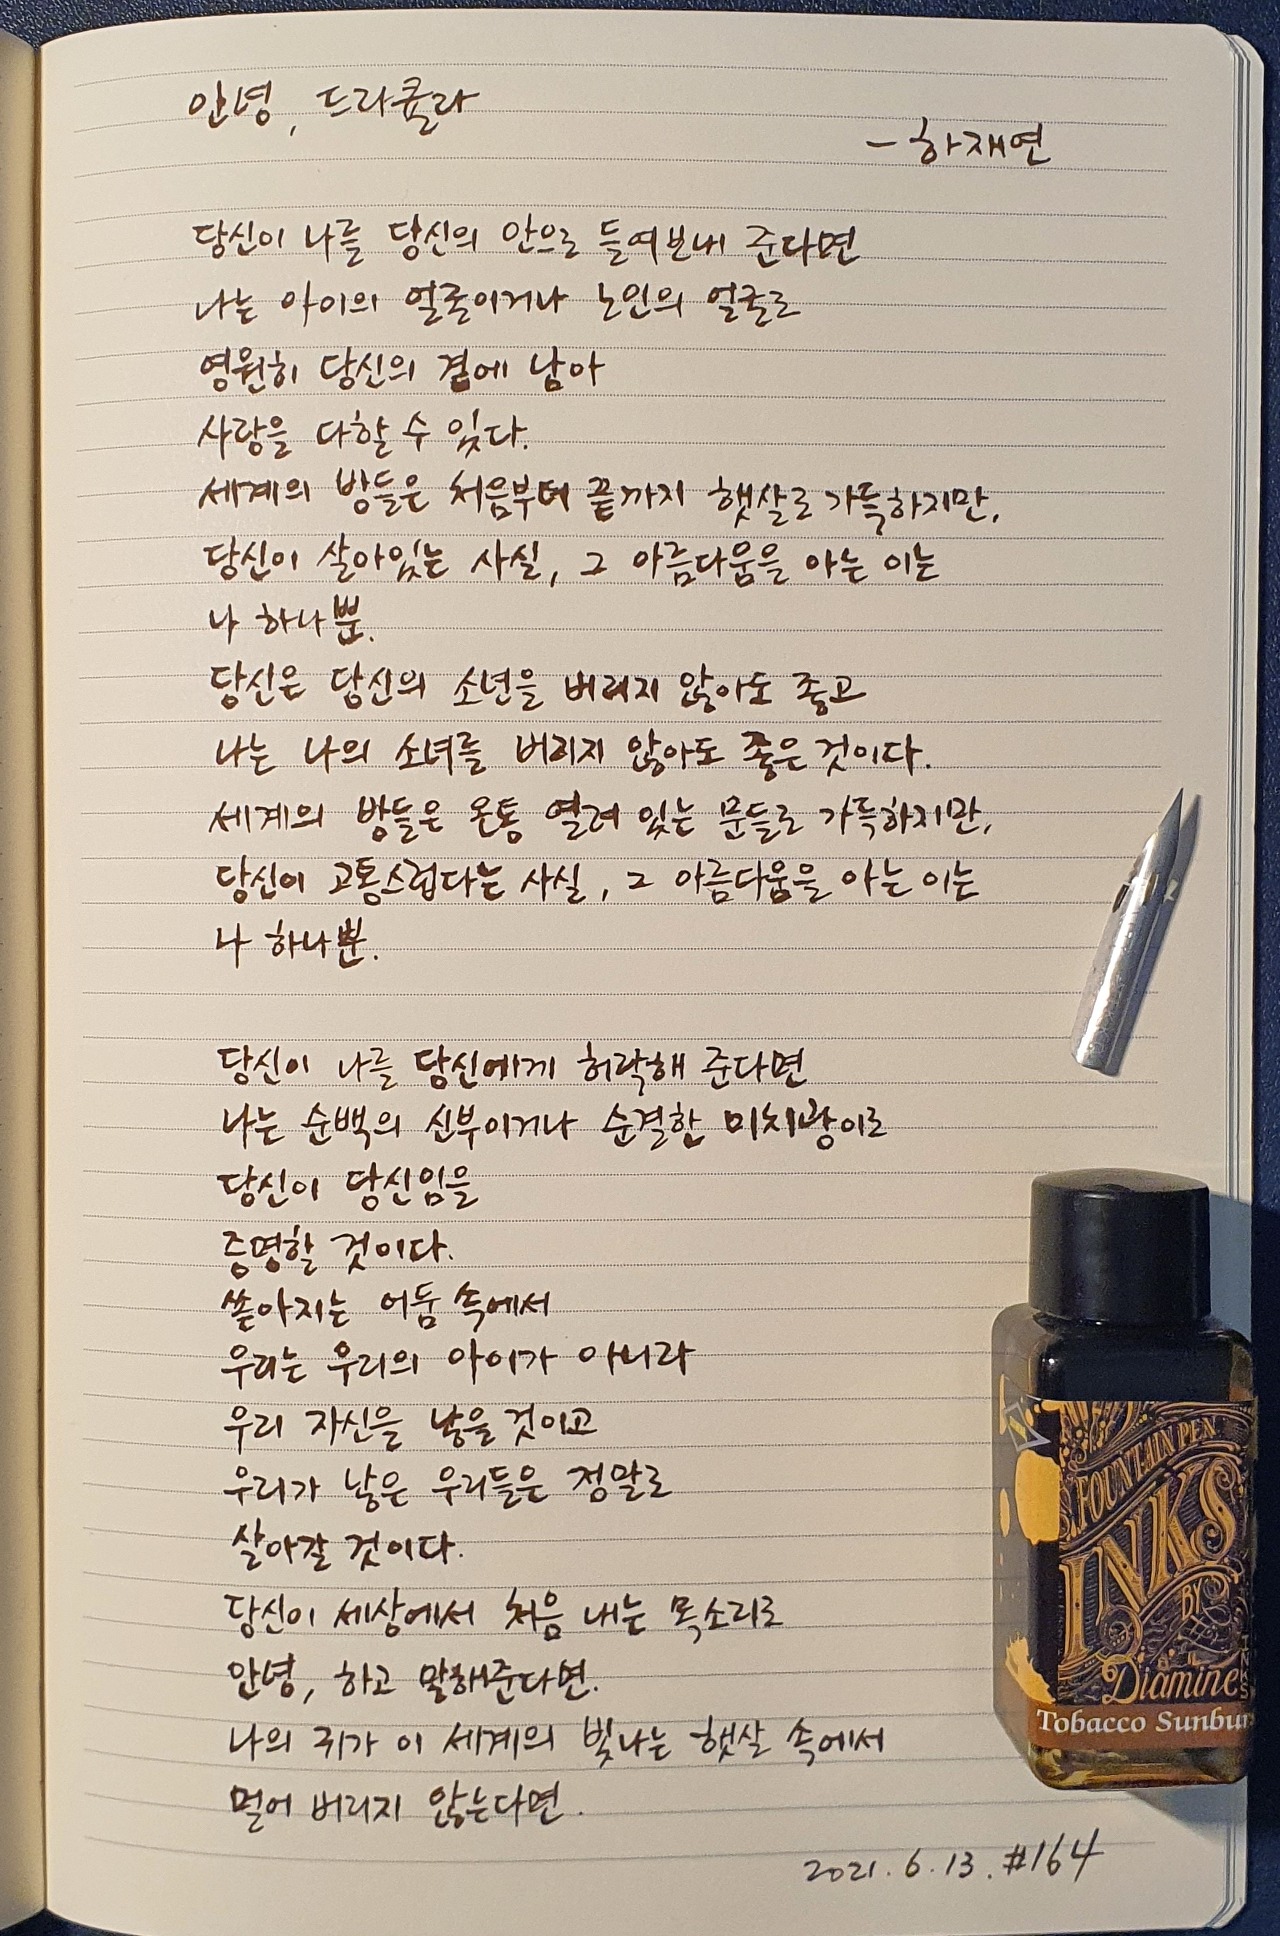 안녕, 드라큘라
- 하재연
당신이 나를 당신의 안으로 들여보내 준다면
나는 아이의 얼굴이거나 노인의 얼굴로
영원히 당신의 곁에 남아
사랑을 다할 수 있다.
세계의 방들은 처음부터 끝까지 햇살로 가득하지만,
당신이 살아있는 사실, 그 아름다움을 아는 이는
나 하나뿐.
당신은 당신의 소년을 버리지 않아도 좋고
나는 나의 소녀를 버리지 않아도 좋은 것이다.
세계의 방들은 온통 열려 있는 문들로 가득하지만,
당신이 고통스럽다는 사실, 그 아름다움을 아는 이는
나 하나뿐.
당신이 나를 당신에게 허락해 준다면
나는 순백의 신부이거나 순결한 미치광이로
당신이 당신임을
증명할 것이다.
쏟아지는 어둠 속에서
우리는 우리의 아이가 아니라
우리 자신을 낳을 것이고
우리가 낳은 우리들은 정말로
살아갈 것이다.
당신이 세상에서 처음 내는 목소리로
안녕, 하고 말해준다면.
나의 귀가 이 세계의 빛나는 햇살 속에서
멀어 버리지 않는다면.
2021. 6. 13. #164
FOUNTAIN PEN
INKS
BY
Diamine
Tobacco Sunbur